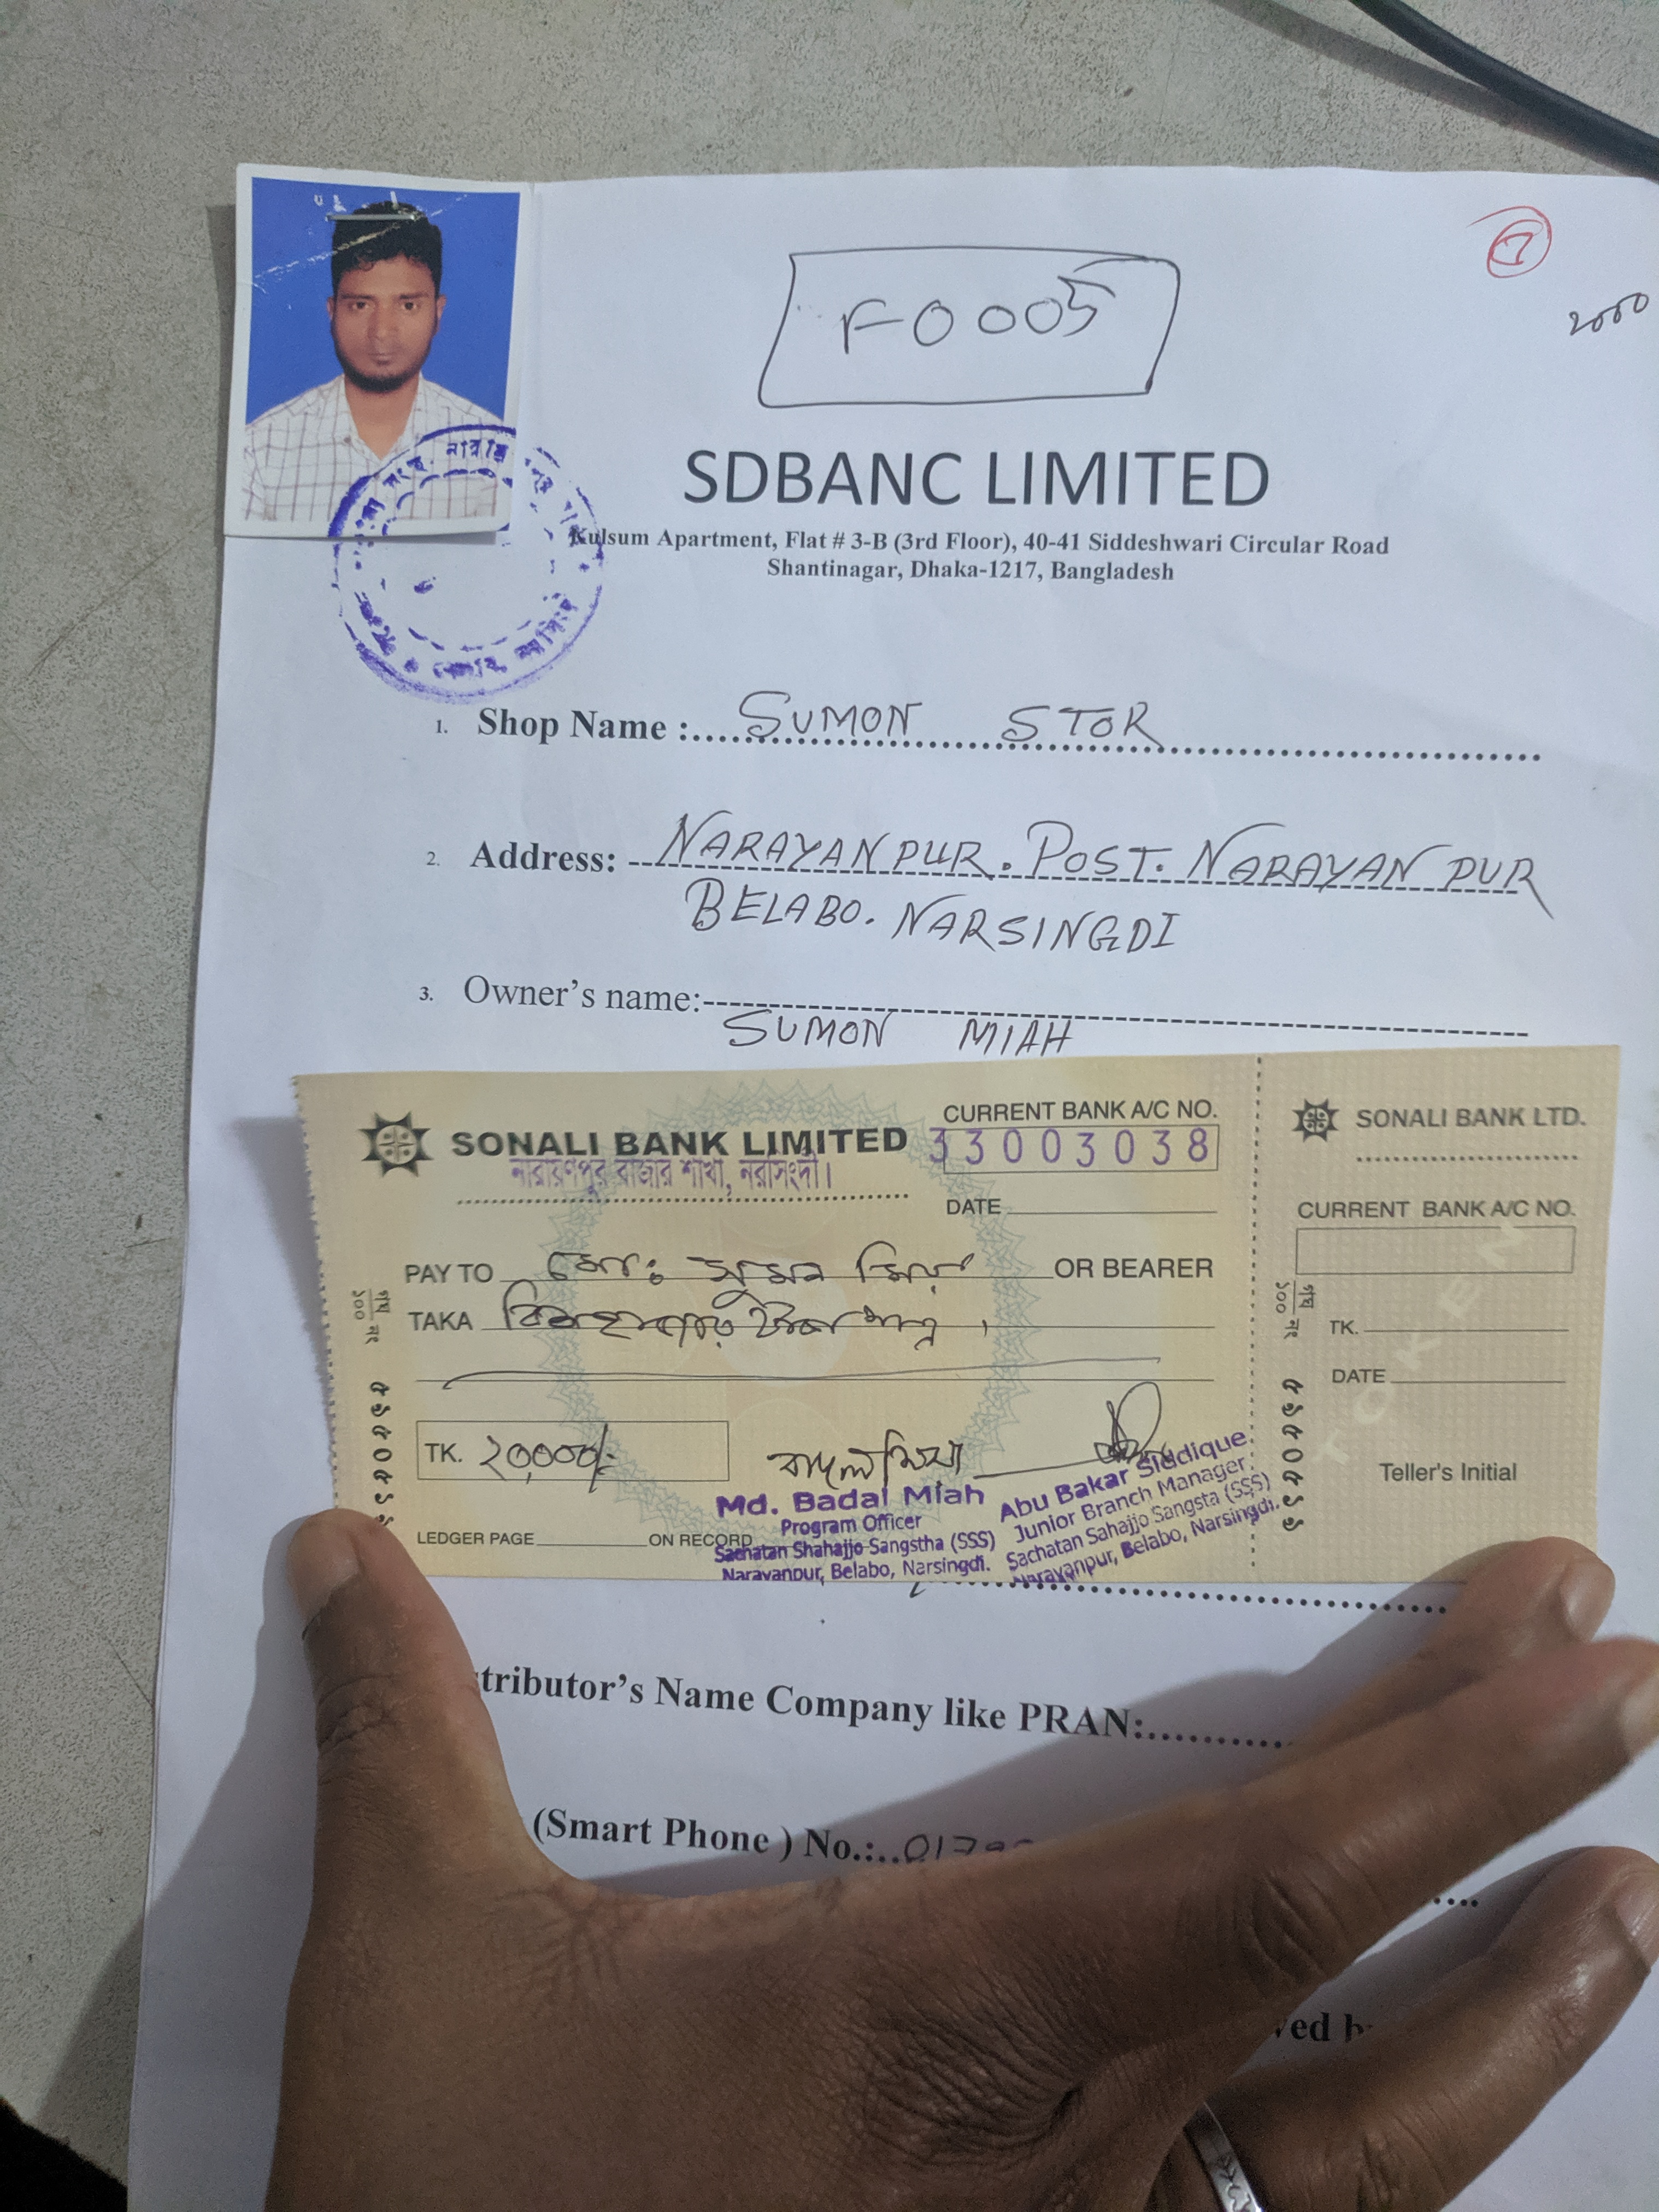 F0005
7
SDBANC LIMITED
Kulsum Apartment, Flat # 3-B (3rd Floor), 40-41 Siddeshwari Circular Road
Shantinagar, Dhaka-1217, Bangladesh
1. Shop Name : SUMON STOR
2. Address: NARAYANPUR. POST. NARAYANPUR
BELABO. NARSINGDI
3. Owner's name:
SUMON MIAH
SONALI BANK LIMITED
নারায়ণপুর বাজার শাখা, নরসিংদী।
CURRENT BANK A/C NO.
33003038
DATE
PAY TO মোঃ সুমন মিয়া OR BEARER
TAKA বিশ হাজার টাকা মাত্র।
TK. ২০,০০০/-
বাদল মিয়া
Md. Badal Miah
Program Officer
Sachatan Shahajjo Sangstha (SSS)
Narayanpur, Belabo, Narsingdi.
Abu Bakar Siddique
Junior Branch Manager
Sachatan Sahajjo Sangsta (SSS)
Narayanpur, Belabo, Narsingdi.
LEDGER PAGE ON RECORD
গাঘ ১০০ নং ৫৯৫০৫৯৯
SONALI BANK LTD.
CURRENT BANK A/C NO.
TK.
DATE
TOKEN
Teller's Initial
গাঘ ১০০ নং ৫৯৫০৫৯৯
tributor's Name Company like PRAN:
(Smart Phone ) No.: 017
ved b